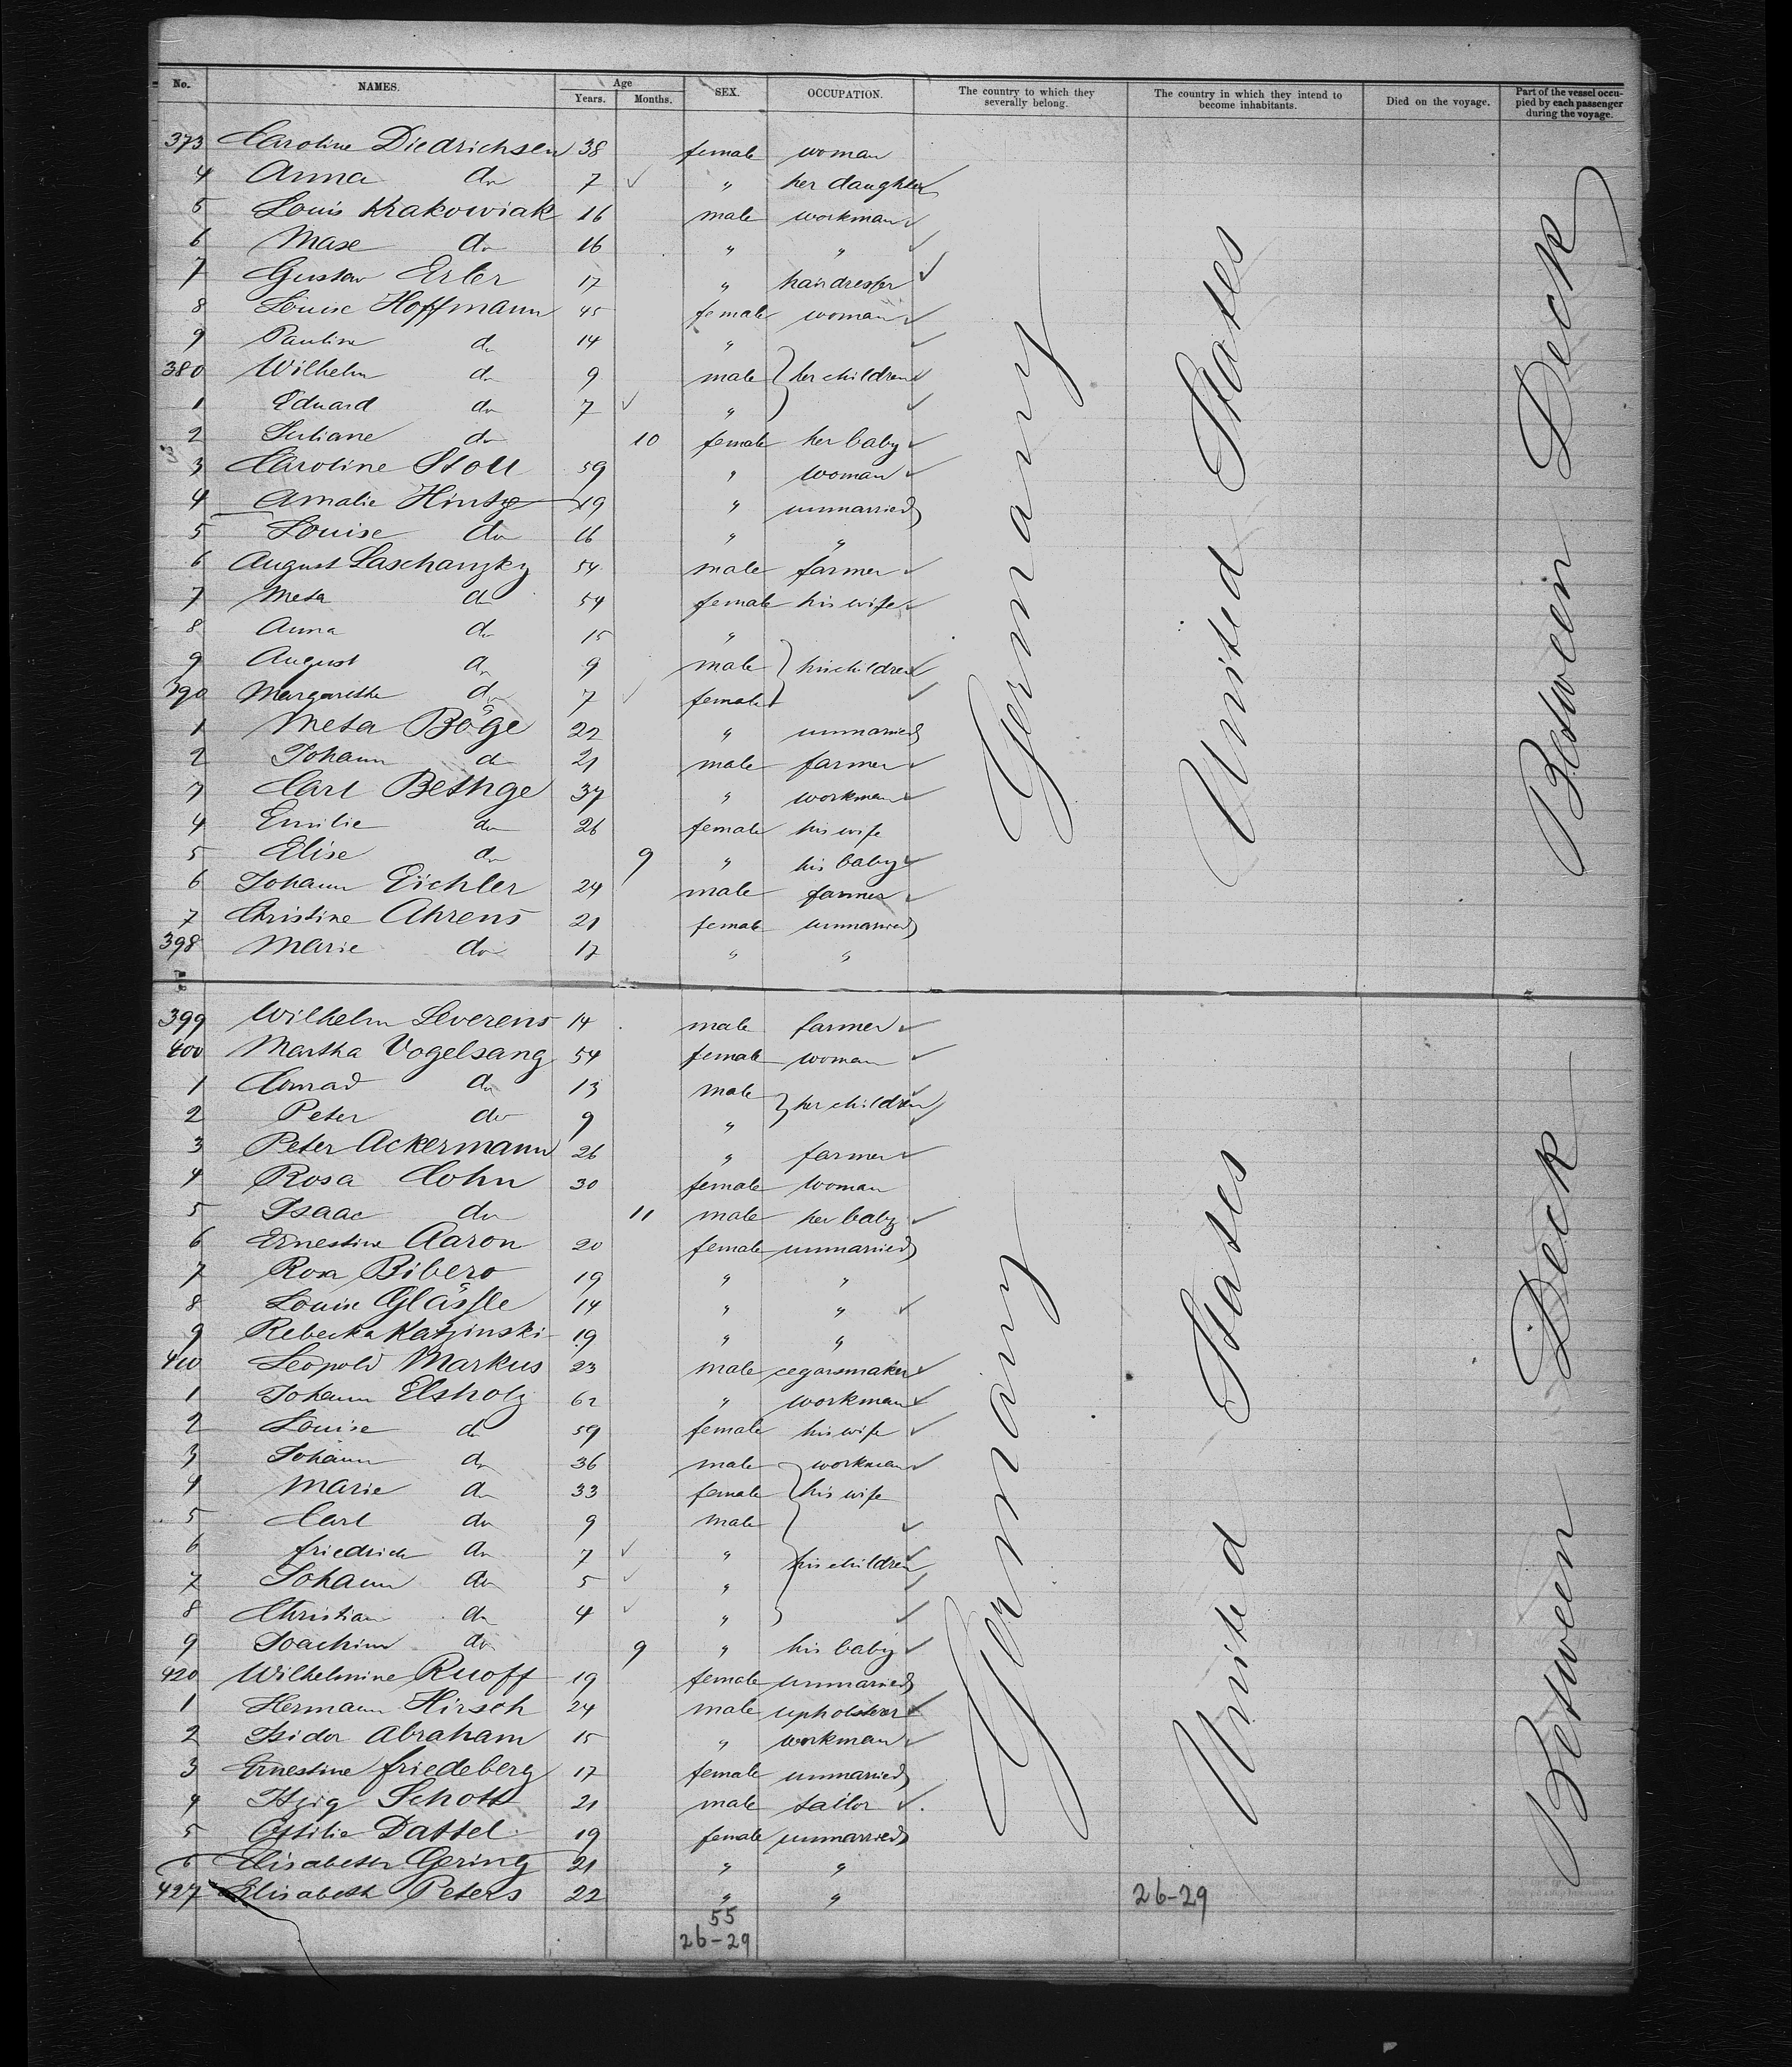 No. NAMES. Age Years. Months. SEX. OCCUPATION. The country to which they severally belong. The country in which they intend to become inhabitants. Died on the voyage. Part of the vessel occupied by each passenger during the voyage.
373 Caroline Diedrichsen 38 female woman
4 Anna do 7 " her daughter
5 Louis Krakowiak 16 male workman
6 Mase do 16 " "
7 Gustav Erler 17 " hairdresser
8 Louise Hoffmann 45 female woman
9 Pauline do 14 "
380 Wilhelm do 9 male her children
1 Eduard do 7 "
2 Juliane do 10 female her baby
3 Caroline Stoll 59 " woman
4 Amalie Hintze 19 " unmarried
5 Louise do 16 " "
6 August Laschanzky 54 male farmer
7 Meta do 54 female his wife
8 Anna do 15 "
9 August do 9 male his children
390 Margarethe do 7 female
1 Meta Böge 22 " unmarried
2 Johann do 21 male farmer
3 Carl Bethge 37 " workman
4 Emilie do 26 female his wife
5 Elise do 9 " his baby
6 Johann Eichler 24 male farmer
7 Christine Ahrens 21 female unmarried
398 Marie do 17 " "
Germany United States Between Deck
399 Wilhelm Leverens 14 male farmer
400 Martha Vogelsang 54 female woman
1 Conrad do 13 male her children
2 Peter do 9 "
3 Peter Ackermann 26 " farmer
4 Rosa Cohn 30 female woman
5 Isaac do 11 male her baby
6 Ernestine Aaron 20 female unmarried
7 Rosa Bibero 19 " "
8 Louise Glässle 14 " "
9 Rebecka Katzinski 19 " "
410 Leopold Markus 23 male cegarsmaker
1 Johann Elsholz 62 " workman
2 Louise do 59 female his wife
3 Johann do 36 male workman
4 Marie do 33 female his wife
5 Carl do 9 male
6 friedrich do 7 " his children
7 Johann do 5 "
8 Christian do 4 "
9 Joachim do 9 " his baby
420 Wilhelmine Ruoff 19 female unmarried
1 Hermann Hirsch 24 male upholsterer
2 Isidor Abraham 15 " workman
3 Ernestine friedeberg 17 female unmarried
4 Itzig Schott 21 male tailor
5 Ottilie Dattel 19 female unmarried
6 Elisabeth Gering 21 " "
427 Elisabeth Peters 22 " "
Germany United States Between Deck
26-29
55
26-29